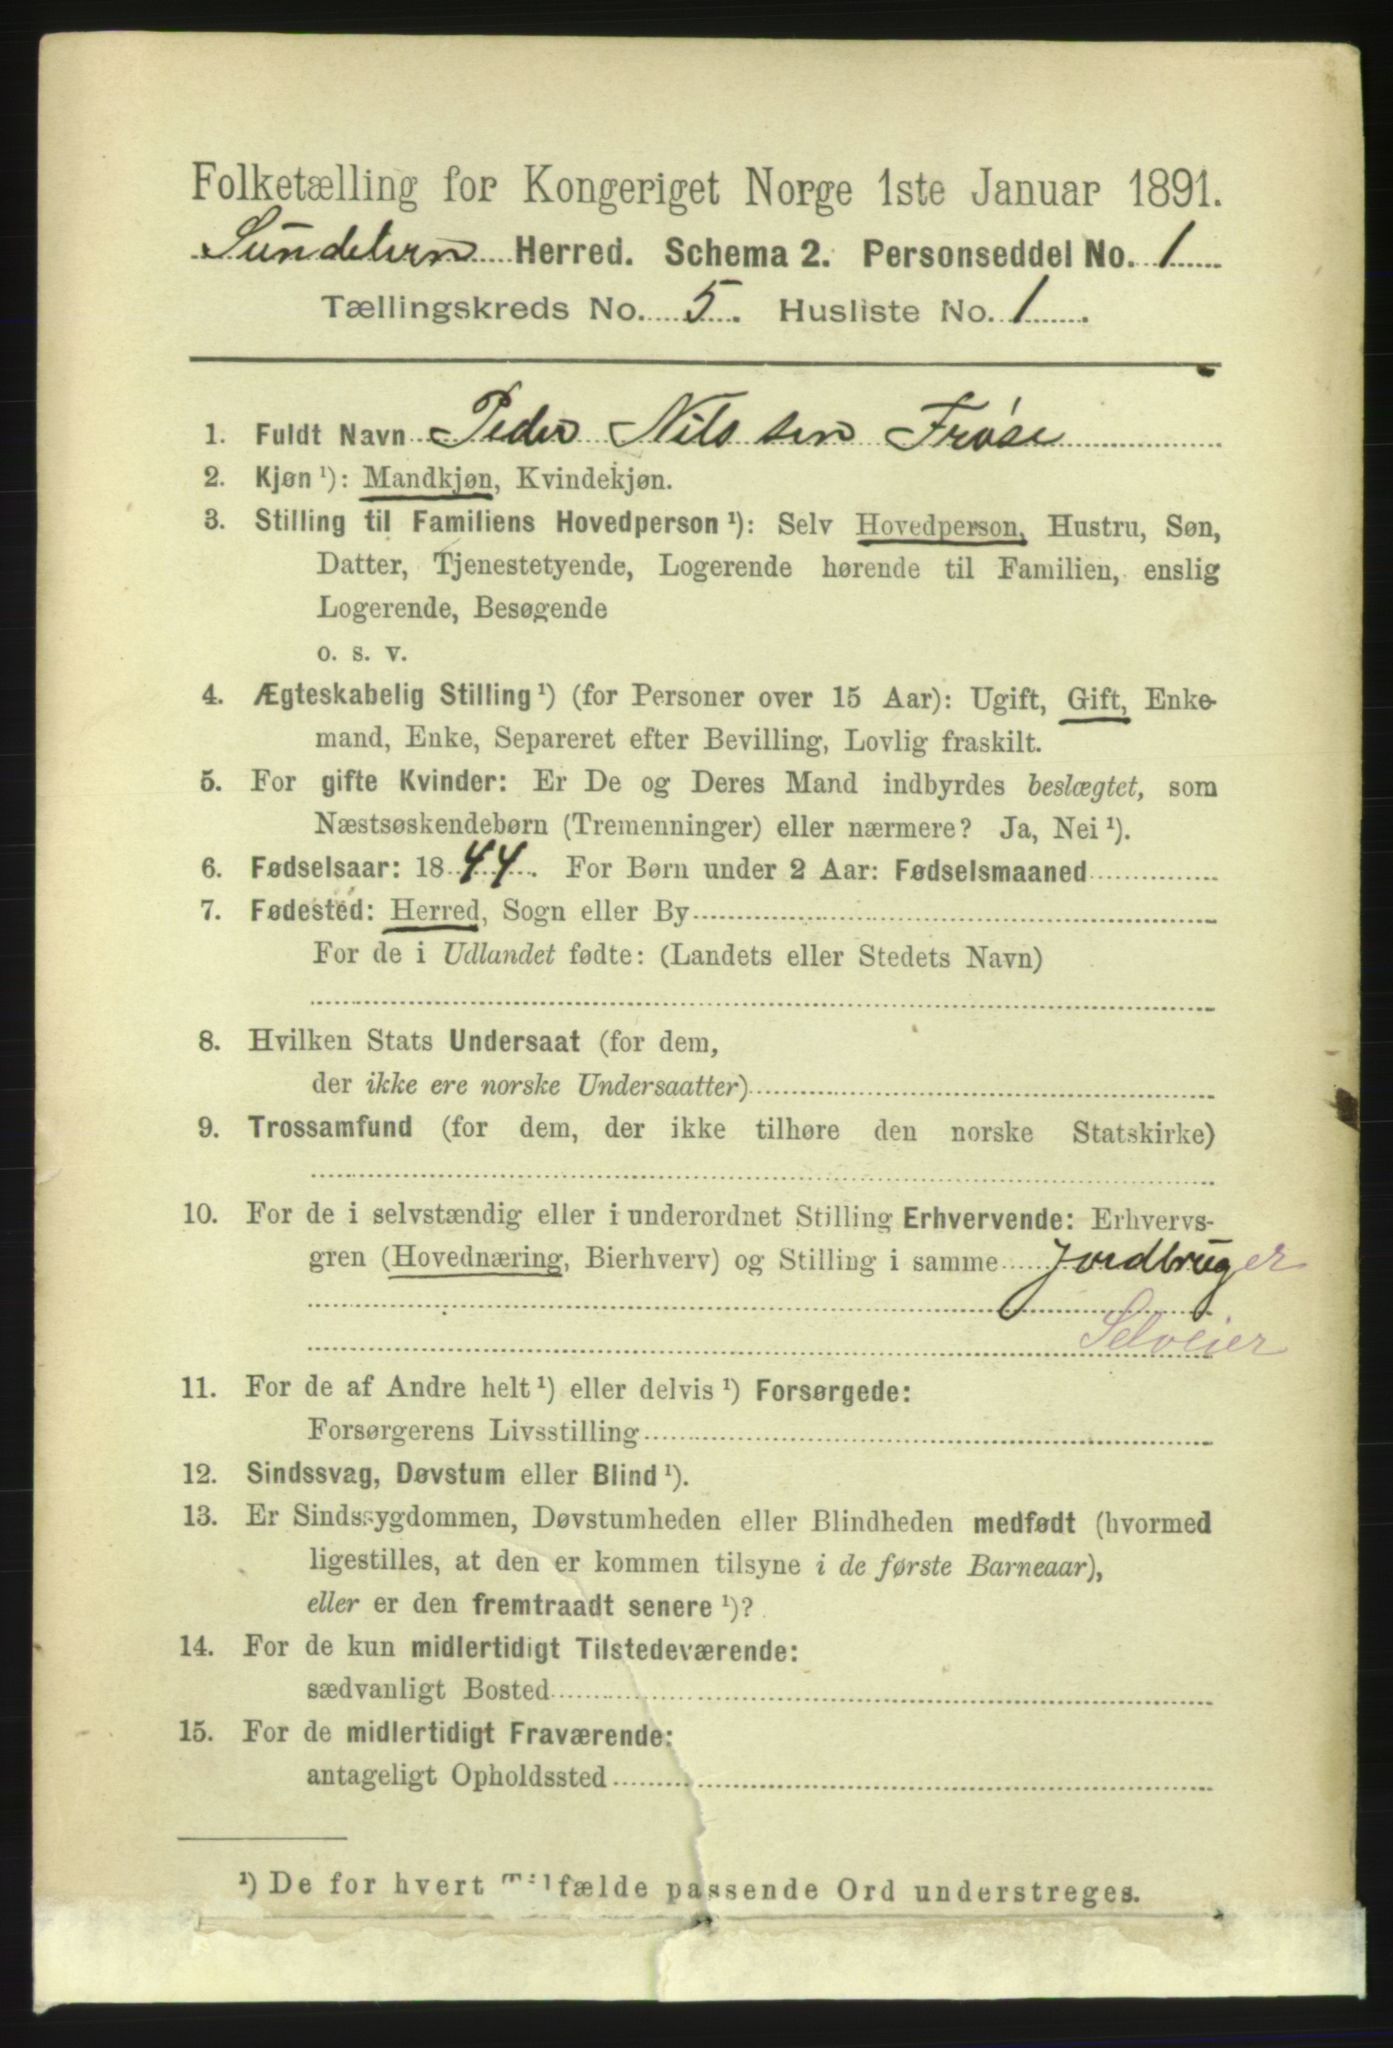 Folketælling for Kongeriget Norge 1ste Januar 1891.
Herred. Schema 2. Personseddel No. 1
Tællingskreds No. 5. Husliste No. 1.
1. Fuldt Navn Peder Nilssen Frøse
2. Kjøn ¹): Mandkjøn, Kvindekjøn.
3. Stilling til Familiens Hovedperson ¹): Selv Hovedperson, Hustru, Søn,
Datter, Tjenestetyende, Logerende hørende til Familien, enslig
Logerende, Besøgende
o. s. v.
4. Ægteskabelig Stilling ¹) (for Personer over 15 Aar): Ugift, Gift, Enke-
mand, Enke, Separeret efter Bevilling, Lovlig fraskilt.
5. For gifte Kvinder: Er De og Deres Mand indbyrdes beslægtet, som
Næstsøskendebørn (Tremenninger) eller nærmere? Ja, Nei ¹).
6. Fødselsaar: 1844. For Børn under 2 Aar: Fødselsmaaned
7. Fødested: Herred, Sogn eller By
For de i Udlandet fødte: (Landets eller Stedets Navn)
8. Hvilken Stats Undersaat (for dem,
der ikke ere norske Undersaatter)
9. Trossamfund (for dem, der ikke tilhøre den norske Statskirke)
10. For de i selvstændig eller i underordnet Stilling Erhvervende: Erhvervs-
gren (Hovednæring, Bierhverv) og Stilling i samme Jordbruger
Selveier
11. For de af Andre helt ¹) eller delvis ¹) Forsørgede:
Forsørgerens Livsstilling
12. Sindssvag, Døvstum eller Blind ¹).
13. Er Sindssygdommen, Døvstumheden eller Blindheden medfødt (hvormed
ligestilles, at den er kommen tilsyne i de første Barneaar),
eller er den fremtraadt senere ¹)?
14. For de kun midlertidigt Tilstedeværende:
sædvanligt Bosted
15. For de midlertidigt Fraværende:
antageligt Opholdssted
¹) De for hvert Tilfælde passende Ord understreges.